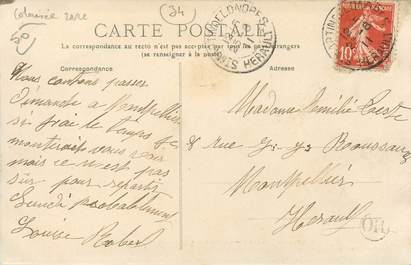 Colorisée rare
50
34
CARTE POSTALE
La correspondance au recto n'est pas acceptée par tous les pays étrangers
(se renseigner à la poste)
Correspondance
Adresse
HERAULT
10c
Nous comptons passer
Dimanche à Montpellier
si j'ai le temps je
monterai vous voir
mais ce n'est pas
sûr pour repartir
Lundi probablement
Louise
Madame Emilie
8 rue J. J. Rousseau
Montpellier
Herault